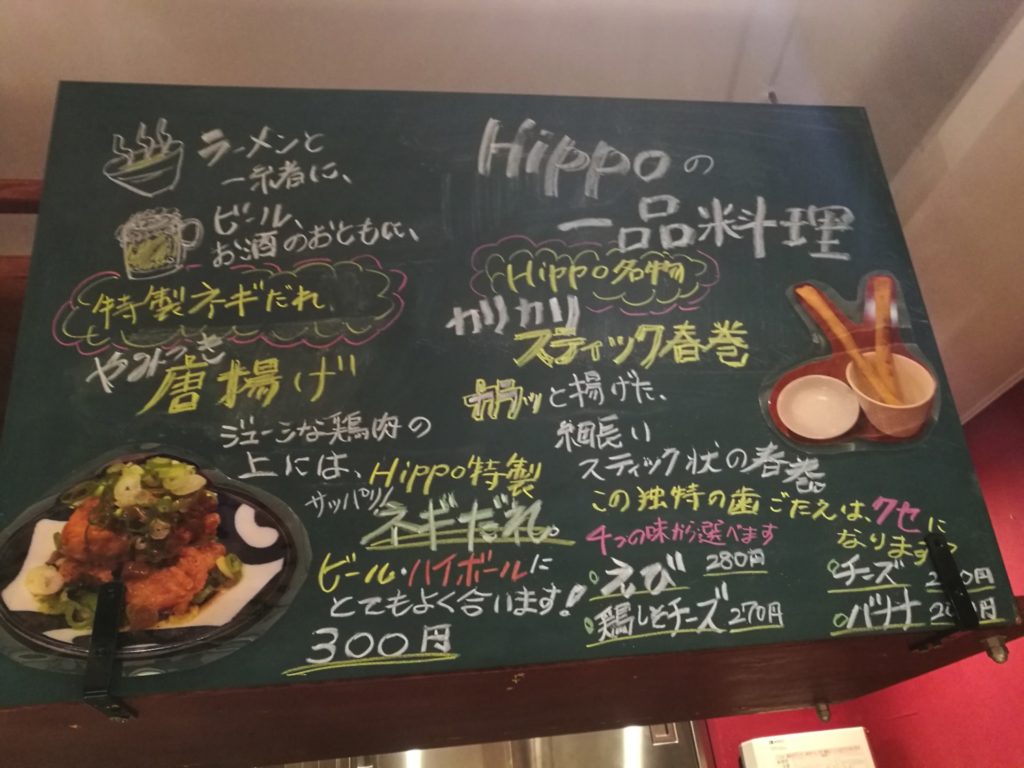 Hippoの
一品料理
ラーメンと
一緒に、
ビール、
お酒のおともに、
特製ネギだれ
やみつき
唐揚げ
ジューシな鶏肉の
上には、Hippo特製
サッパリ ネギだれ。
ビール・ハイボールに
とてもよく合います!
300円
Hippo名物
カリカリ
スティック春巻
カラッと揚げた、
細長い
スティック状の春巻。
この独特の歯ごたえは、クセに
なります
4つの味から選べます
えび 280円
鶏しそチーズ 270円
チーズ
バナナ